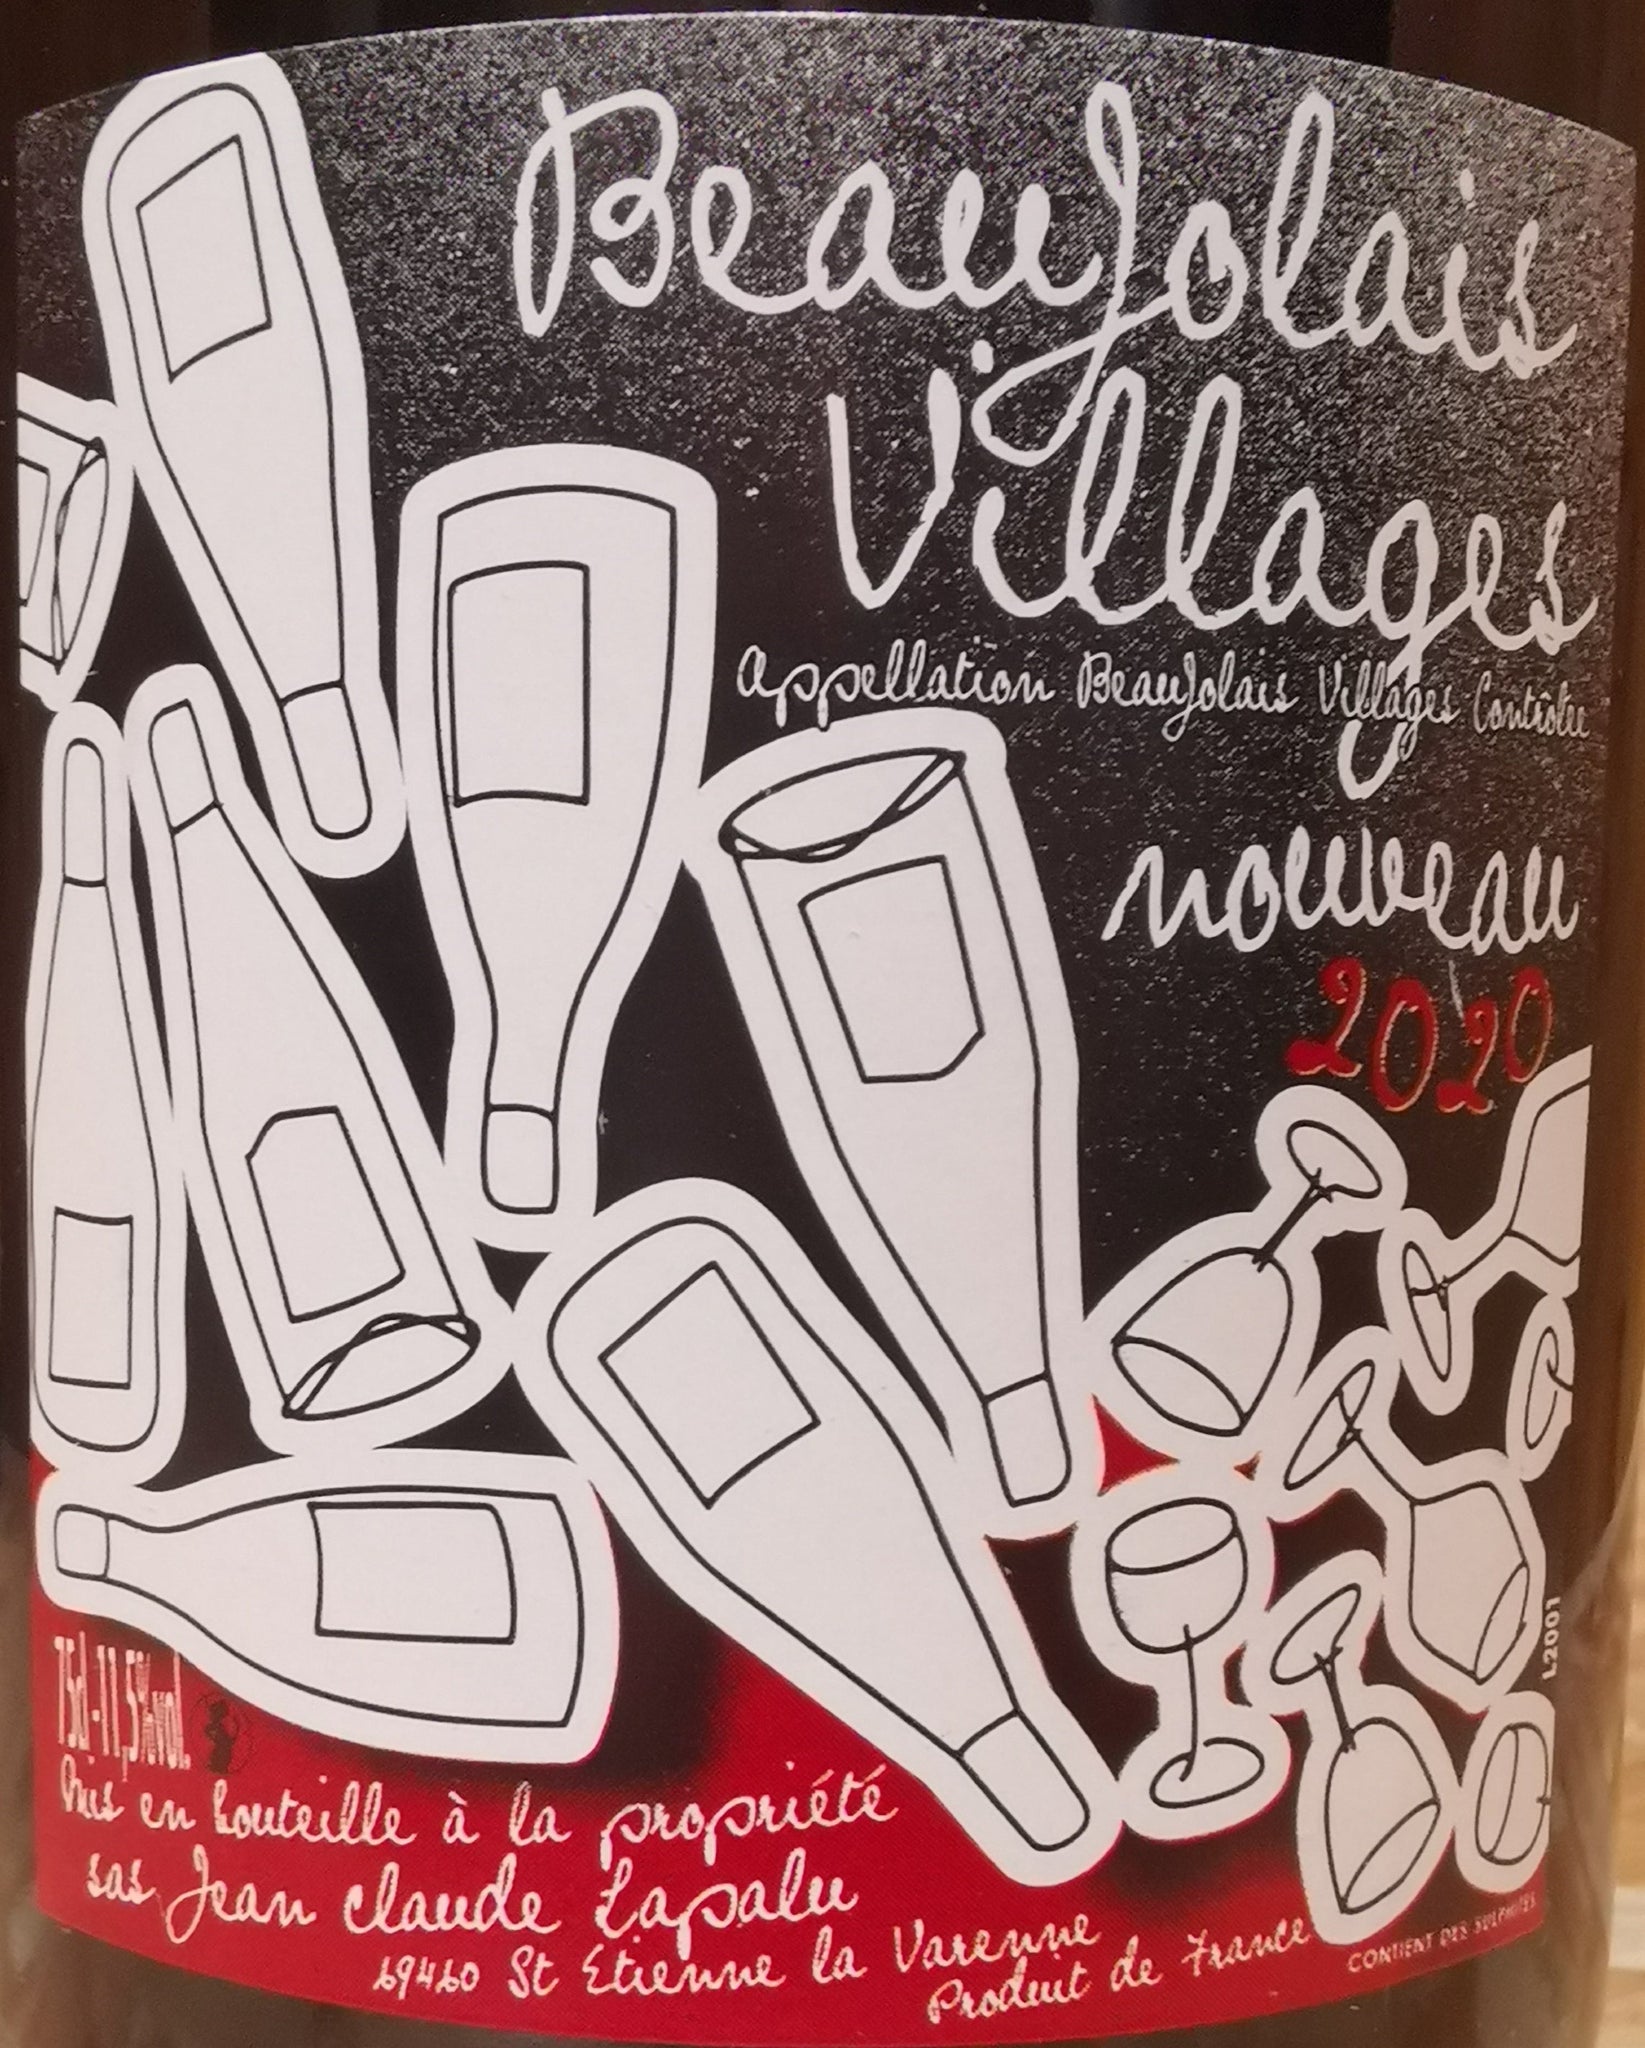 BeauJolais
Villages
appellation BeauJolais Villages Contrôlée
nouveau
2020
L2001
75cl - 11,5%vol.
Mis en bouteille à la propriété
sas Jean claude Lapalu
69460 St Etienne la Varenne
Produit de France
CONTIENT DES SULPHITES